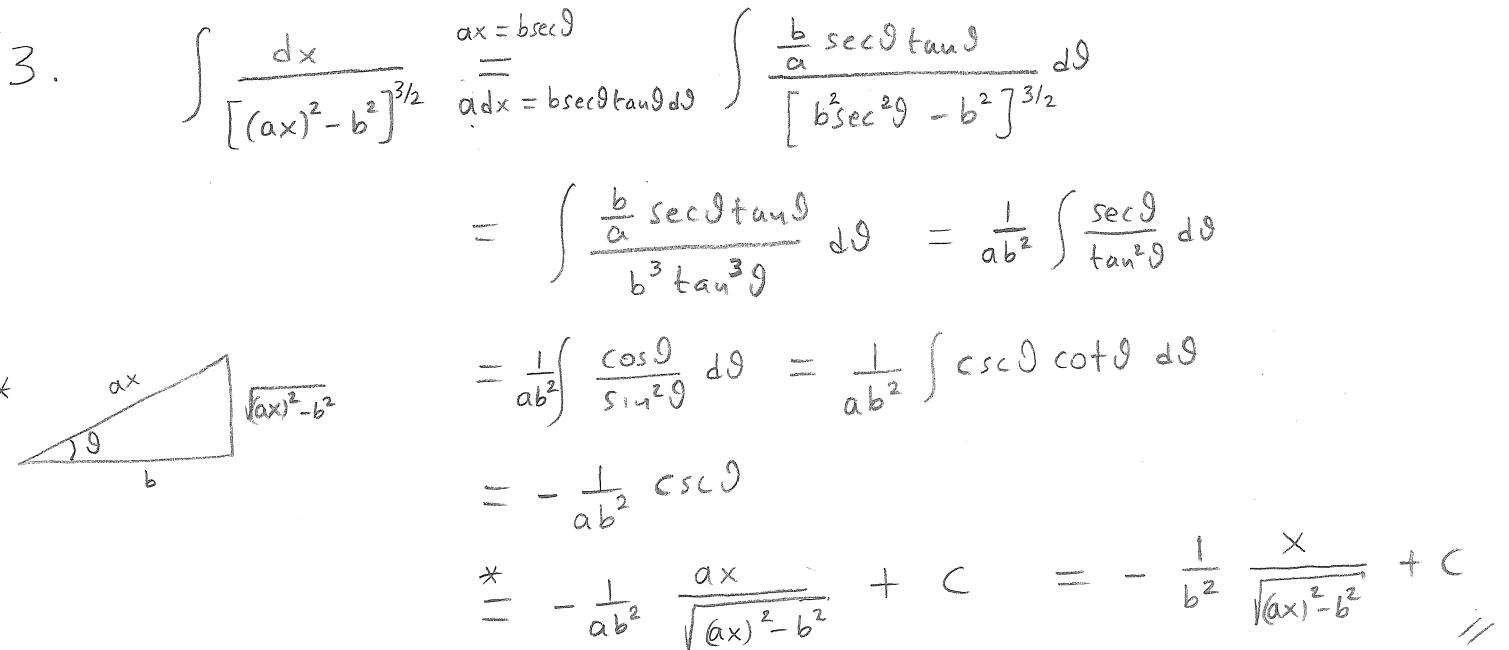 3. ∫ dx / [(ax)² - b²]^{3/2} = (ax = b secϑ, adx = b secϑ tanϑ dϑ) ∫ (b/a secϑ tanϑ) / [b² sec²ϑ - b²]^{3/2} dϑ
= ∫ (b/a secϑ tanϑ) / (b³ tan³ϑ) dϑ = 1/(ab²) ∫ secϑ / tan²ϑ dϑ
= 1/(ab²) ∫ cosϑ / sin²ϑ dϑ = 1/(ab²) ∫ cscϑ cotϑ dϑ
* ax √((ax)² - b²) ϑ b
= - 1/(ab²) cscϑ
*= - 1/(ab²) ax / √((ax)² - b²) + C = - 1/b² x / √((ax)² - b²) + C //